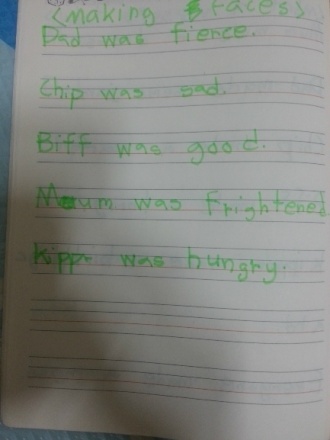 <making faces>
Dad was fierce.
Chip was sad.
Biff was good.
Mum was frightened
Kipper was hungry.